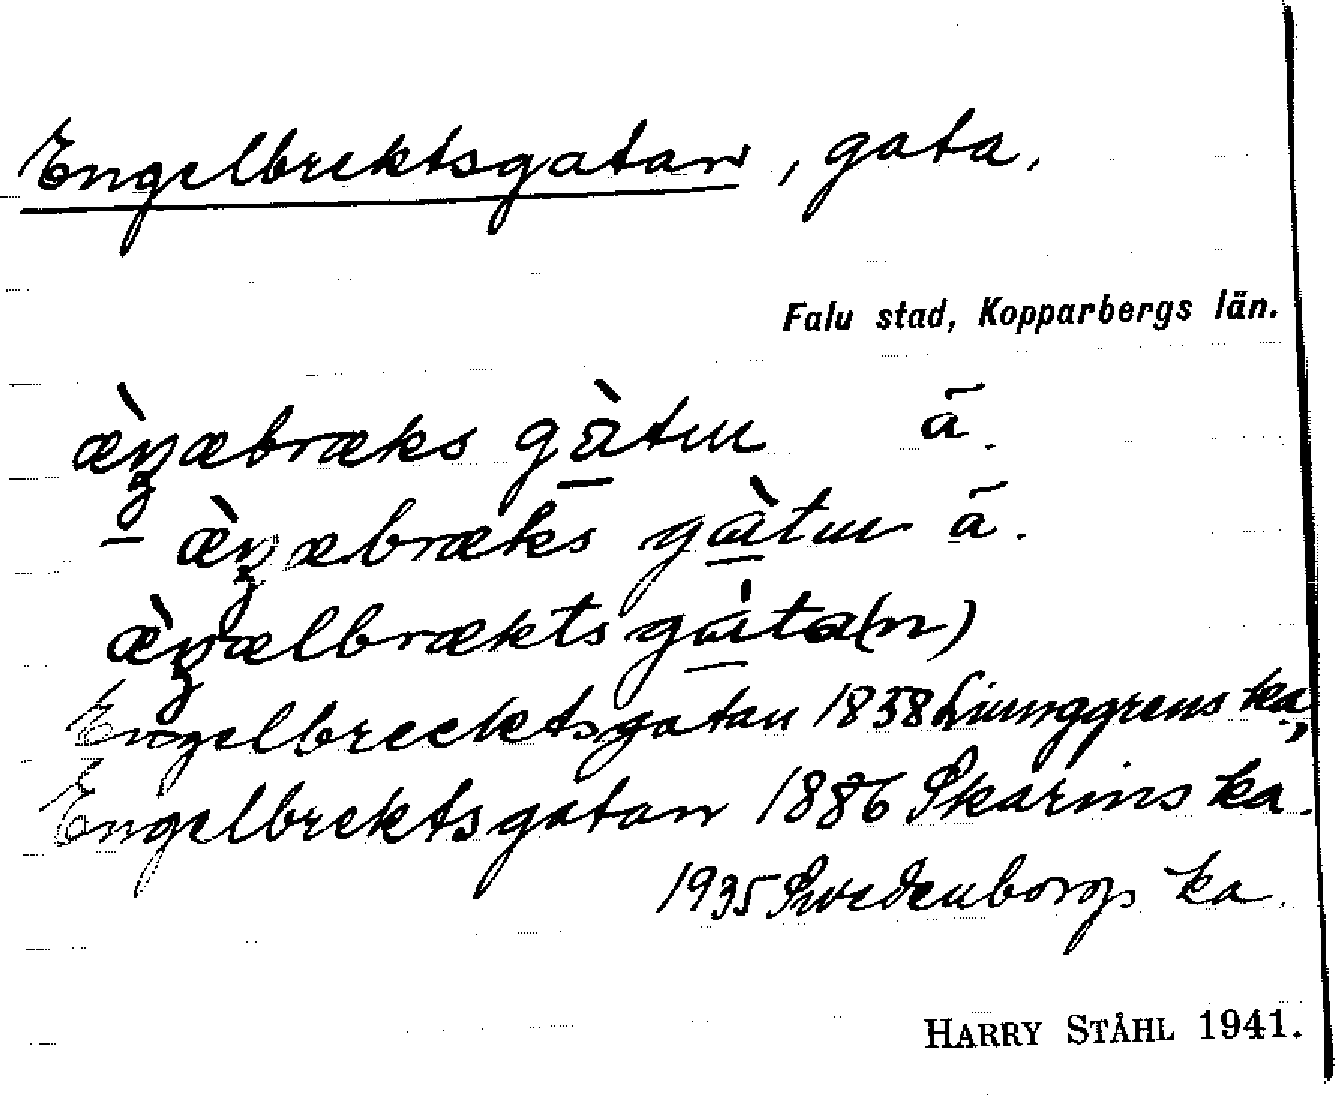 Engelbrektsgatan, gata.
Falu stad, Kopparbergs län.
æ̀ŋæbræks gàtuu ã.
- æ̀ŋæbræks gàtuu ã.
æ̀ŋælbrækts gàta(n)
Engelbrecktsgatan 1858 Ljunggrens ka,
Engelbrektsgatan 1886 Skarins ka.
1935 Swedenborgs ka.
HARRY STÅHL 1941.